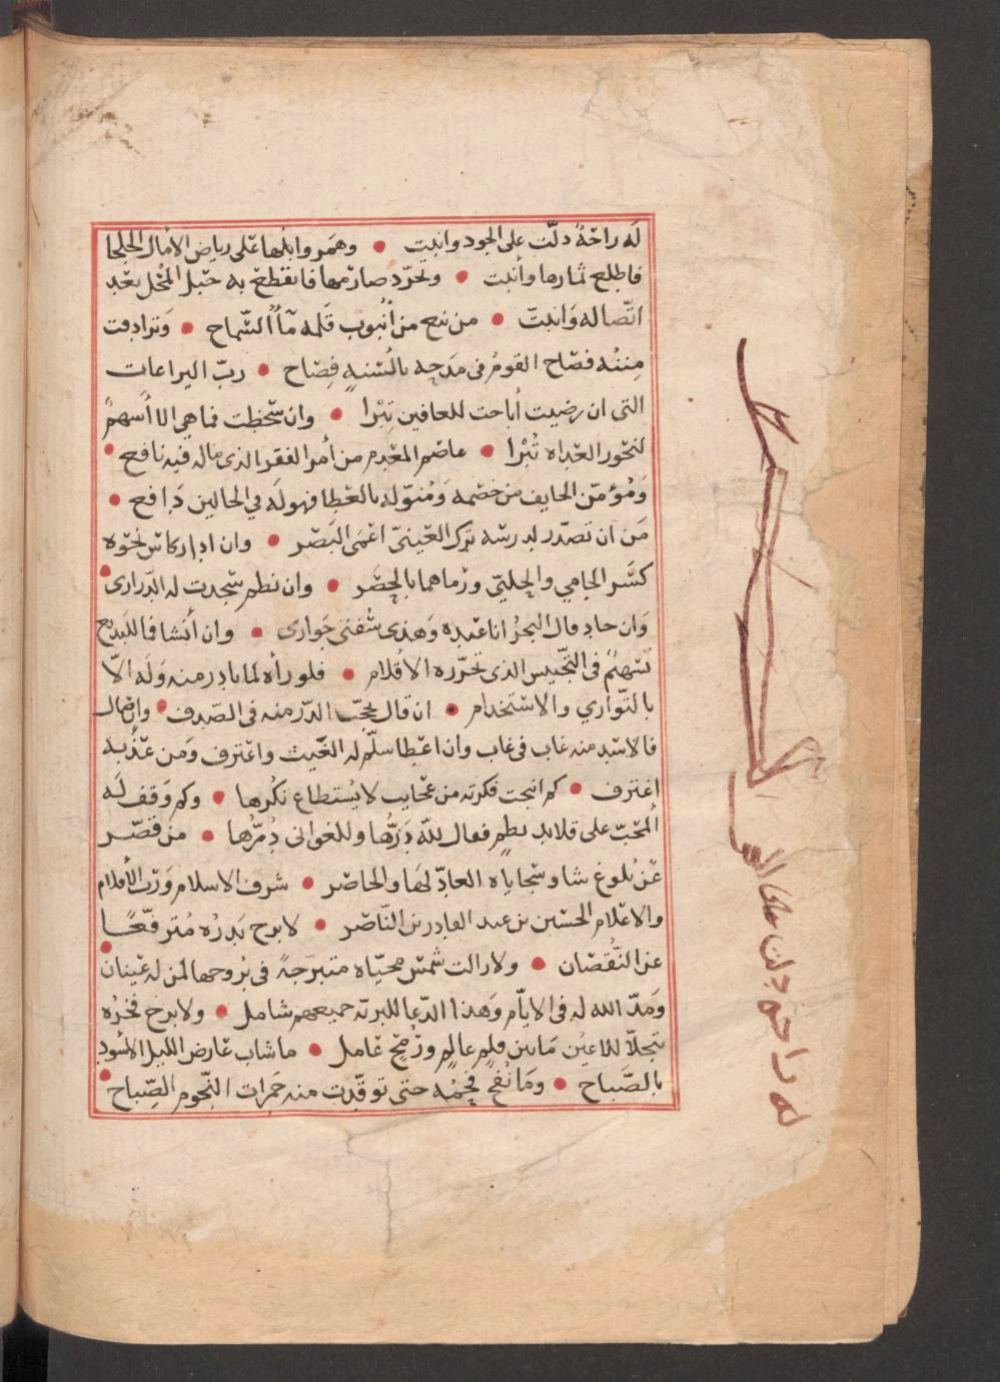 له راحةٌ دلّت على الجود وانبت • وهَمَر وابلُها على رياض الآمال الجلجا
فاطلع ثمارها وأنبت • وتحرّد صارمها فانقطع به حبل المُحْل بعد
اتّصاله وَانبتّ • من نبع من أُنبُوب قَلمه مآءُ السّماح • وَترادفت
مِننُه فصَاح القومُ فى مَدحه بالسُنهٍ فِصَاح • ربّ اليراعات
التى ان رضيت أباحت للعافين تِبْرا • وان سَخطت فما هى الا أسهمٌ
لنحُور العداه تُبْرا • عاصم المعْدم من أمر الفقر الذى ماله فيه نافع •
وَمُؤمّن الخايف من خصمه وَمُنوّله بالعطا فهو له في الحالين دَافع •
مَن ان تصدّر لدرسه ترك العَينىّ اعْمَى البَصَر • وان ادار كاس نحوه
كسَر الجامي والحلبىّ ورماهما بالحِصَر • وان نظم سَجدت له الدّرارى •
وَان جاد قال البحرُ انا عَبده وَهذى سُفنى جَوارى • وان أنشا فالبديع
فى التجنيس الذى تحرّره الاقلام • فلو رأه لما بادر منه وَله الّا
بالتّوارى والاستخدام • ان قال عجَب الدّر منه فى الصَدف • وان صال
فالاسَد منه غاب فى غاب وان اعطا سلّم له الغَيث واعترف وَمن عَذْبه
اغترف • كم انتجت فكرته من عجايب لا يُستطاع نكُرها • وكم وَقف له
المحبّ على قلايد نظمٍ فقال للّه دَرُّها وللغوانى دُرُّها • من قصّر
عن بُلوغ شاو سَجاياه العادّ لهَا والحاصَر • شرف الاسلام وَربّ الأقلام
والاعلام الحسَين بن عبد القادر بن النّاصَر • لا برح بَدرُه مُترفّعًا
عن النُقْصَان • ولا زالت شمسُ محيّاه متبرّجةً فى بُروجها لمن له عَينان •
وَمدّ الله له فى الايّام وَهذا الدّعا للبريّه جميعهم شامل • ولا برح فخرُه
يتجلّا للاعيُن مَابين قلمٍ عالمٍ ورُمحٍ عَامل • ما شاب عَارض الليل الاسْود
بالصَباح • ومَا نُفخ فحمُه حتى توقّدت منه جَمرات النّجوم الصِّباح •
له راحه دلت على ال